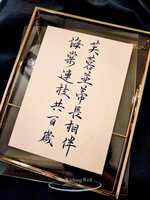 芙蓉並蒂長相伴
海棠連枝共百歲
WishingWell